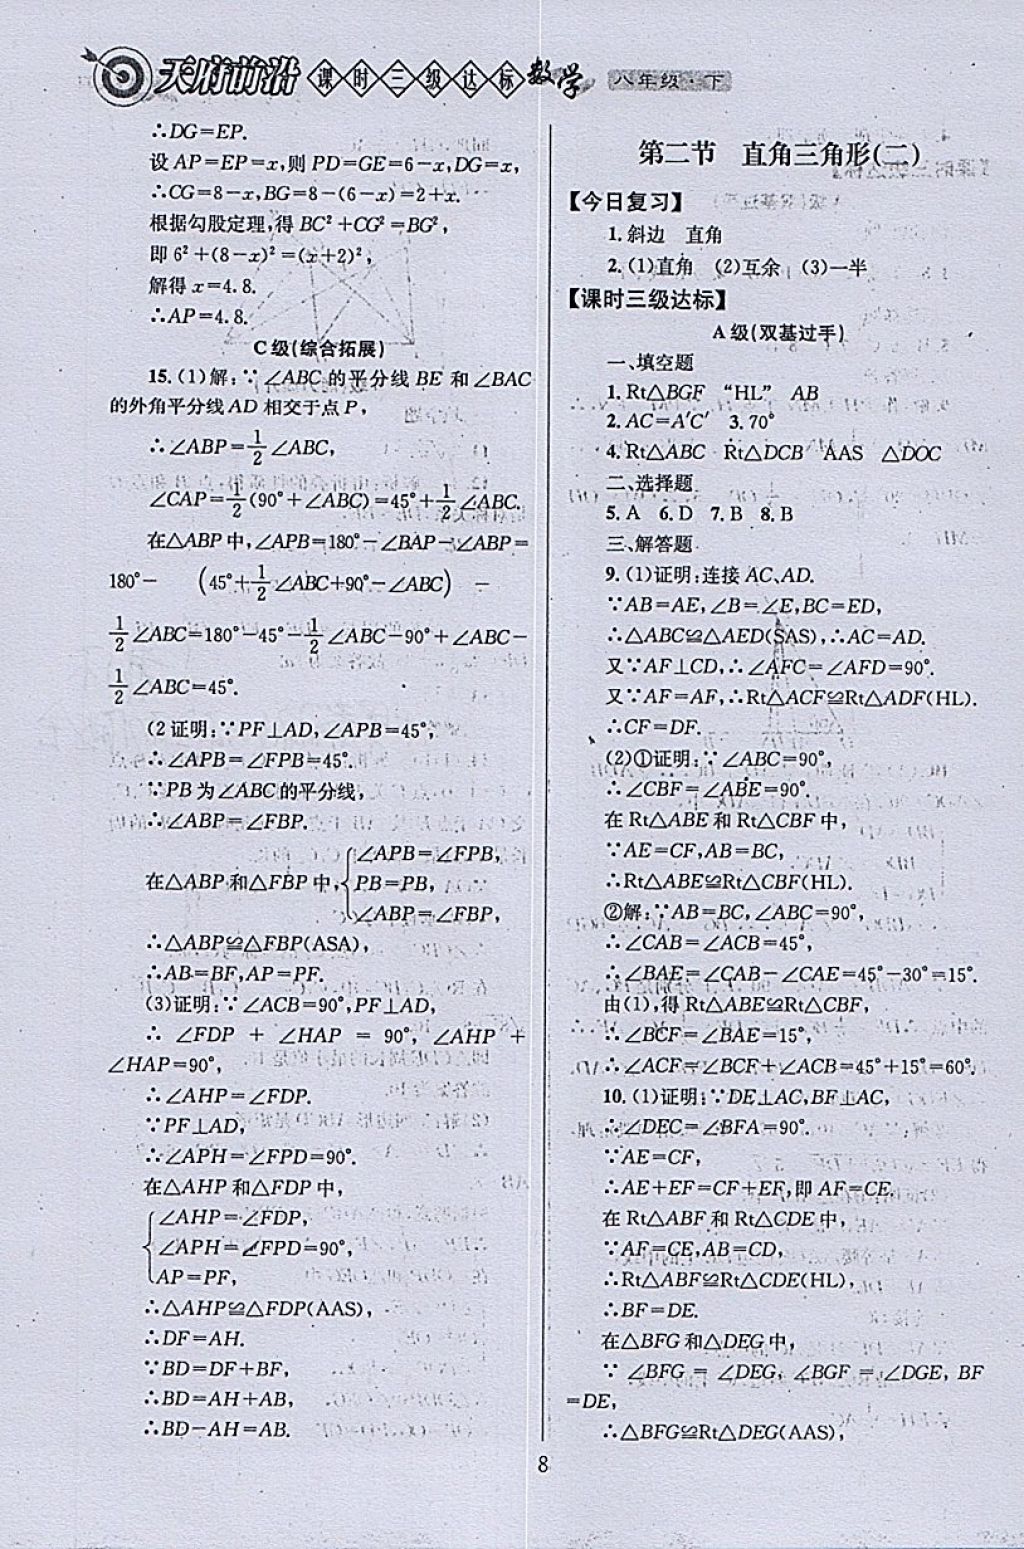 天府前沿 课时三级达标 数学 八年级·下
∴DG=EP.
设 AP=EP=x,则 PD=GE=6-x,DG=x,
∴CG=8-x,BG=8-(6-x)=2+x.
根据勾股定理,得 BC²+CG²=BG²,
即 6²+(8-x)²=(x+2)²,
解得 x=4.8.
∴AP=4.8.
C 级(综合拓展)
15.(1)解:∵∠ABC 的平分线 BE 和∠BAC
的外角平分线 AD 相交于点 P,
∴∠ABP=1/2∠ABC,
∠CAP=1/2(90°+∠ABC)=45°+1/2∠ABC.
在△ABP 中,∠APB=180°-∠BAP-∠ABP=
180°- (45°+1/2∠ABC+90°-∠ABC) -
1/2∠ABC=180°-45°-1/2∠ABC-90°+∠ABC-
1/2∠ABC=45°.
(2 证明:∵PF⊥AD,∠APB=45°,
∴∠APB=∠FPB=45°.
∵PB 为∠ABC 的平分线,
∴∠ABP=∠FBP.
在△ABP 和△FBP 中,{∠APB=∠FPB,
PB=PB,
∠ABP=∠FBP,
∴△ABP≌△FBP(ASA),
∴AB=BF,AP=PF.
(3)证明:∵∠ACB=90°,PF⊥AD,
∴ ∠FDP + ∠HAP = 90°, ∠AHP +
∠HAP=90°,
∴∠AHP=∠FDP.
∵PF⊥AD,
∴∠APH=∠FPD=90°.
在△AHP 和△FDP 中,
{∠AHP=∠FDP,
∠APH=∠FPD=90°,
AP=PF,
∴△AHP≌△FDP(AAS),
∴DF=AH.
∵BD=DF+BF,
∴BD=AH+AB,
∴BD-AH=AB.
第二节 直角三角形(二)
【今日复习】
1.斜边 直角
2.(1)直角 (2)互余 (3)一半
【课时三级达标】
A 级(双基过手)
一、填空题
1.Rt△BGF “HL” AB
2.AC=A′C′ 3.70°
4.Rt△ABC Rt△DCB AAS △DOC
二、选择题
5.A 6.D 7.B 8.B
三、解答题
9.(1)证明:连接 AC、AD.
∵AB=AE,∠B=∠E,BC=ED,
∴△ABC≌△AED(SAS),∴AC=AD.
又∵AF⊥CD,∴∠AFC=∠AFD=90°.
又∵AF=AF,∴Rt△ACF≌Rt△ADF(HL).
∴CF=DF.
(2)①证明:∵∠ABC=90°,
∴∠CBF=∠ABE=90°.
在 Rt△ABE 和 Rt△CBF 中,
∵AE=CF,AB=BC,
∴Rt△ABE≌Rt△CBF(HL).
②解:∵AB=BC,∠ABC=90°,
∴∠CAB=∠ACB=45°,
∴∠BAE=∠CAB-∠CAE=45°-30°=15°.
由(1),得 Rt△ABE≌Rt△CBF,
∴∠BCF=∠BAE=15°,
∴∠ACF=∠BCF+∠ACB=45°+15°=60°.
10.(1)证明:∵DE⊥AC,BF⊥AC,
∴∠DEC=∠BFA=90°.
∵AE=CF,
∴AE+EF=CF+EF,即 AF=CE.
在 Rt△ABF 和 Rt△CDE 中,
∵AF=CE,AB=CD,
∴Rt△ABF≌Rt△CDE(HL),
∴BF=DE.
在△BFG 和△DEG 中,
∵ ∠BFG = ∠DEG, ∠BGF =∠DGE, BF
=DE,
∴△BFG≌Rt△DEG(AAS),
8